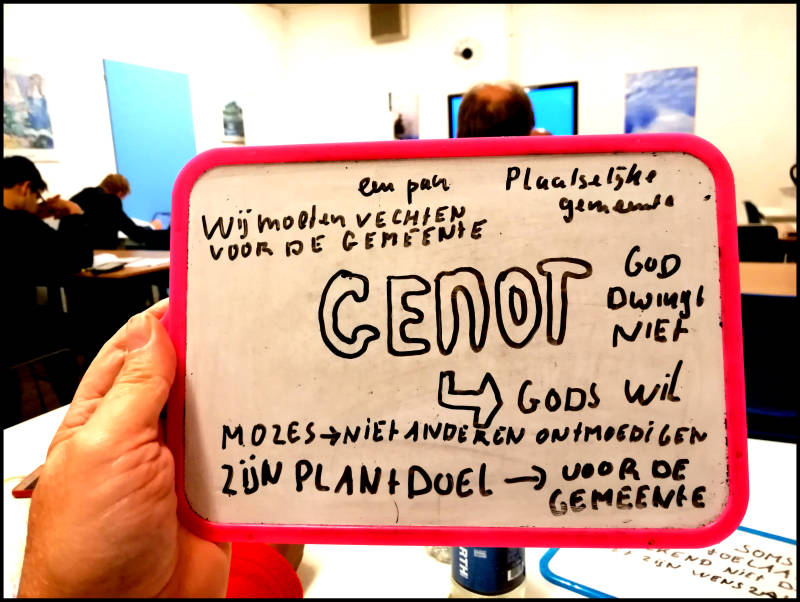 een pan
Plaatselijke
gemeente
Wij moeten VECHTEN
VOOR DE GEMEENTE
GENOT
GOD
DWINGT
NIET
GODS WIL
MOZES → NIET ANDEREN ONTMOEDIGEN
ZIJN PLAN + DOEL → VOOR DE
GEMEENTE
SOMS
NIET D
ZIJN WENS